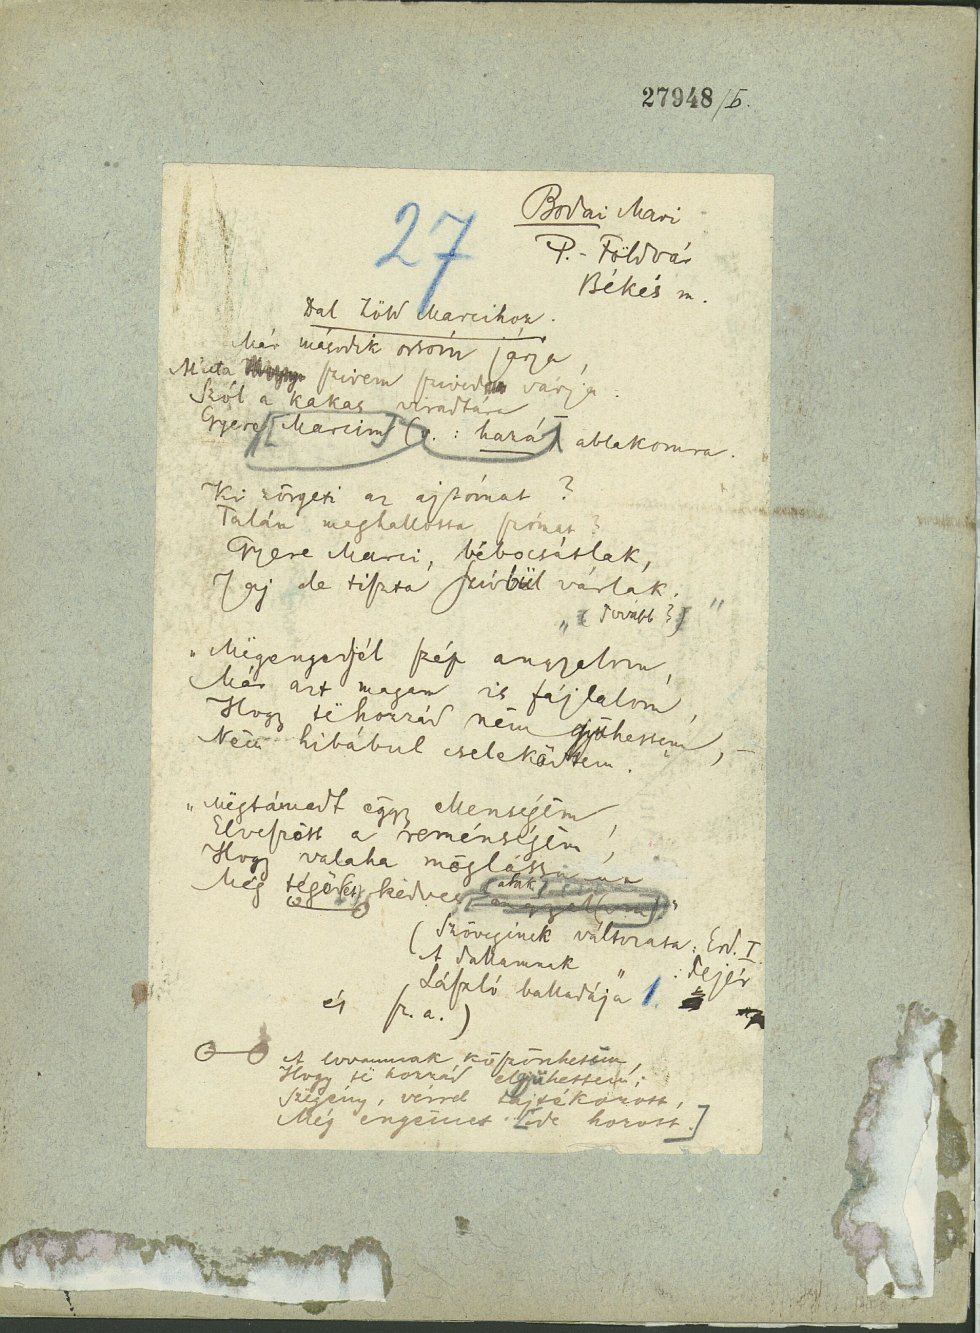 27948/5.
27
Bodai Mari
P.-Földvár
Békés m.
Dal Zöld Marcihoz.
Már második orsóm járja,
Miuta szivem szived várja.
Szól a kakas viradtára
Gyere [Marcim] (v. : hazá) ablakomra.
Ki zörgeti az ajtómat?
Talán meghallotta szómat?
Gyere Marci, bébocsátlak,
Jaj de tiszta szívbül várlak.
„ (tovább?) "
„Mëgengedjél szép angyalom,
Már azt magam is fájlalom,
Hogy të hozzád nëm gyühessem, –
Nëm hibábul cselekëdtem.
„Mëgtámadt ëgy Menségëm,
Elveszëtt a reménségëm,
Hogy valaha mëglássam
Még tégëdet, kedves alak
(Szövegének változata: Erd. I.
A dallamnak : Fejér
László balladája" 1.
és sz. a.)
A lovamnak köszönhetëm,
Hogy të hozzád elgyühettem;
Szëgény, vérrel tajtékozott,
Még engëmet [ide hozott.]